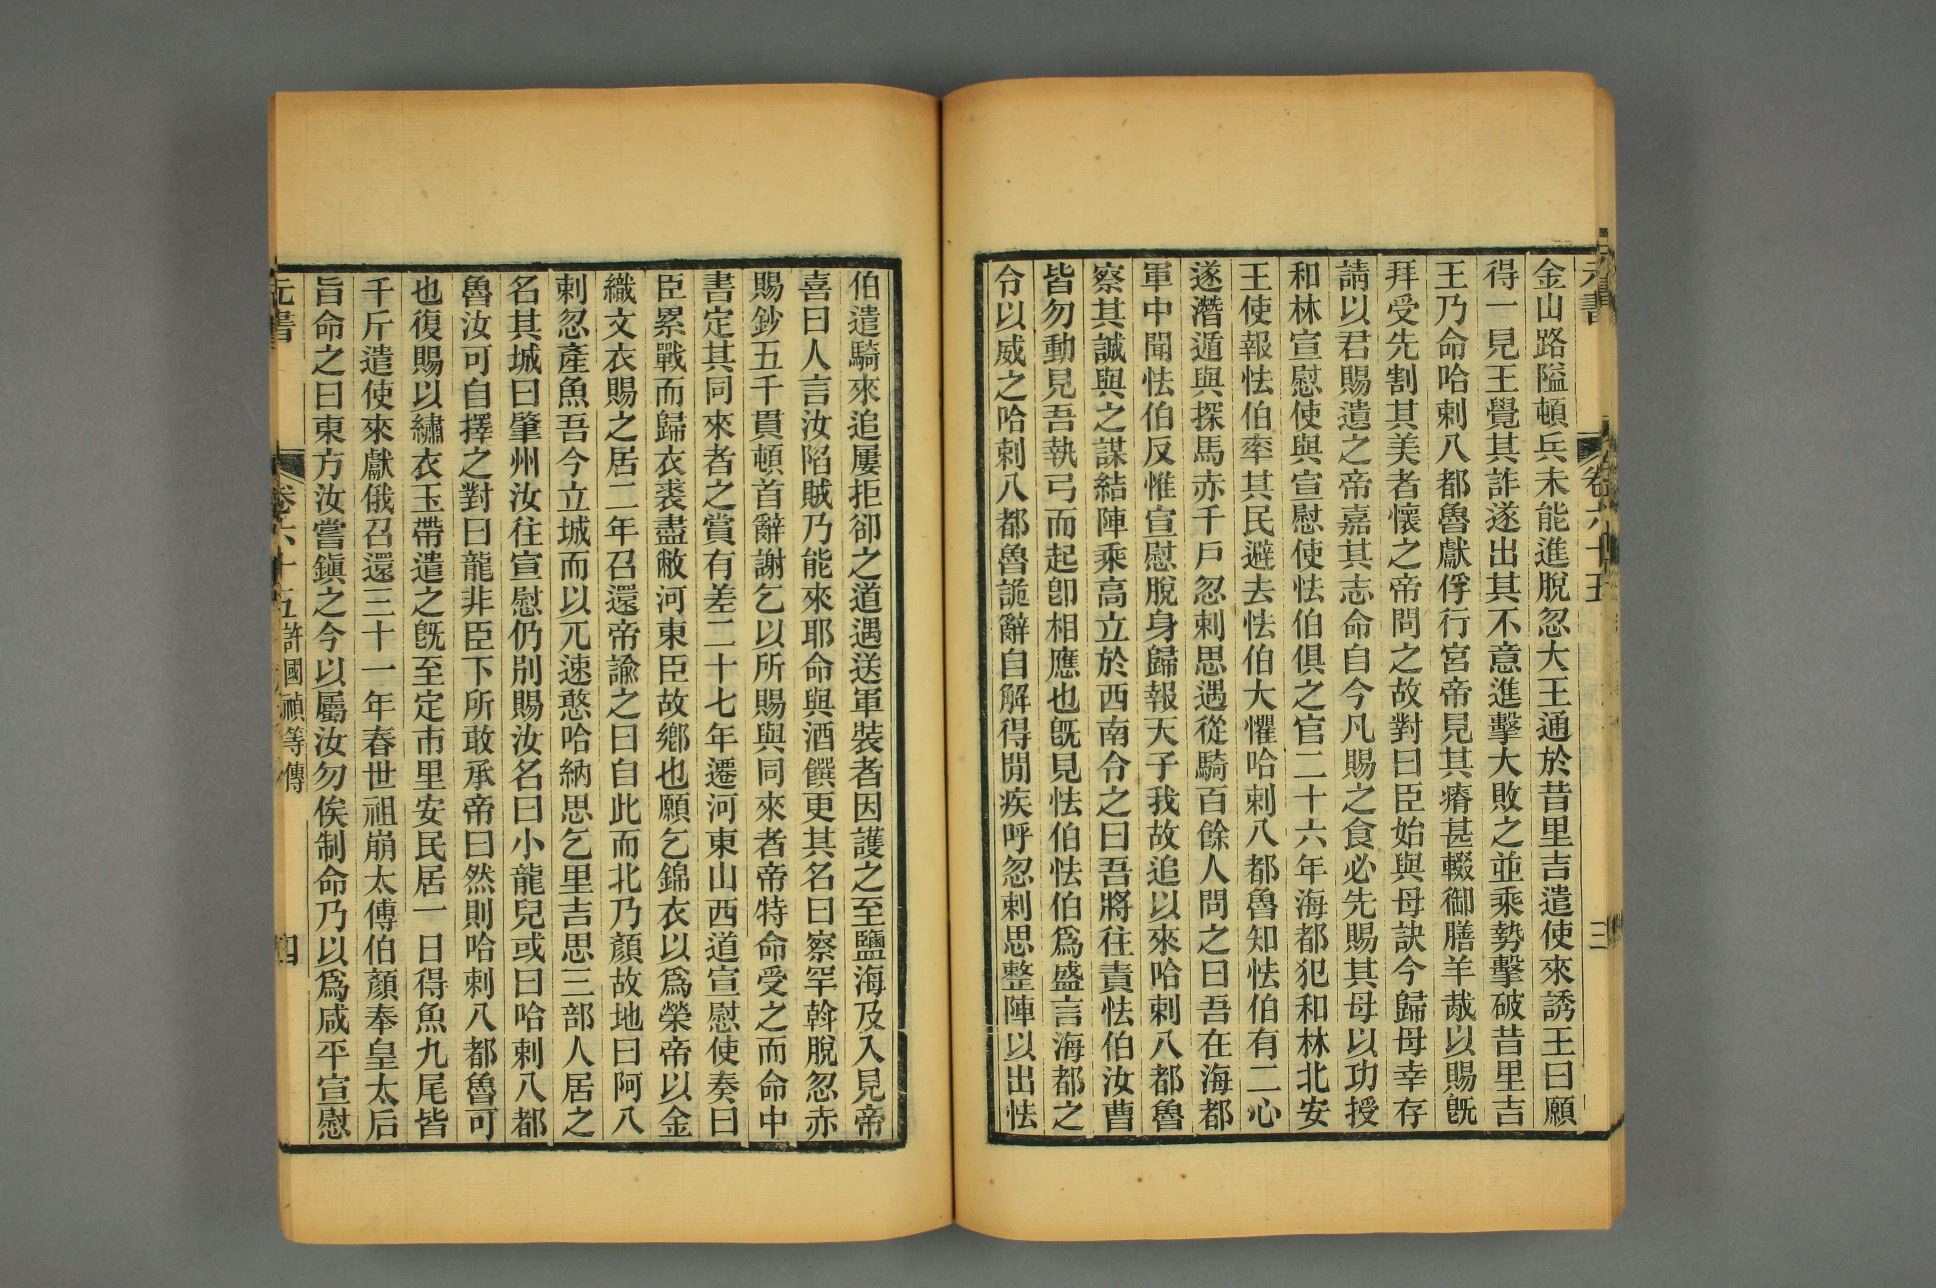 元書
卷六十五
三
金山路隘頓兵未能進脫忽大王通於昔里吉遣使來誘王曰願
得一見王覺其詐遂出其不意進擊大敗之並乘勢擊破昔里吉
王乃命哈剌八都魯獻俘行宮帝見其瘠甚輟御膳羊胾以賜旣
拜受先割其美者懷之帝問之故對曰臣始與母訣今歸母幸存
請以君賜遺之帝嘉其志命自今凡賜之食必先賜其母以功授
和林宣慰使與宣慰使怯伯俱之官二十六年海都犯和林北安
王使報怯伯率其民避去怯伯大懼哈剌八都魯知怯伯有二心
遂潛遁與探馬赤千戶忽剌思遇從騎百餘人問之曰吾在海都
軍中聞怯伯反惟宣慰脫身歸報天子我故追以來哈剌八都魯
察其誠與之謀結陣乘高立於西南令之曰吾將往責怯伯汝曹
皆勿動見吾執弓而起卽相應也旣見怯伯怯伯爲盛言海都之
令以威之哈剌八都魯詭辭自解得閒疾呼忽剌思整陣以出怯
伯遣騎來追屢拒卻之道遇送軍裝者因護之至鹽海及入見帝
喜曰人言汝陷賊乃能來耶命與酒饌更其名曰察罕斡脫忽赤
賜鈔五千貫頓首辭謝乞以所賜與同來者帝特命受之而命中
書定其同來者之賞有差二十七年遷河東山西道宣慰使奏曰
臣累戰而歸衣裘盡敝河東臣故鄉也願乞錦衣以爲榮帝以金
織文衣賜之居二年召還帝諭之曰自此而北乃顏故地曰阿八
剌忽產魚吾今立城而以兀速憨哈納思乞里吉思三部人居之
名其城曰肇州汝往宣慰仍別賜汝名曰小龍兒或曰哈剌八都
魯汝可自擇之對曰龍非臣下所敢承帝曰然則哈剌八都魯可
也復賜以繡衣玉帶遣之旣至定市里安民居一日得魚九尾皆
千斤遣使來獻俄召還三十一年春世祖崩太傅伯顏奉皇太后
旨命之曰東方汝嘗鎭之今以屬汝勿俟制命乃以爲咸平宣慰
元書
卷六十五
許國禎等傳
四